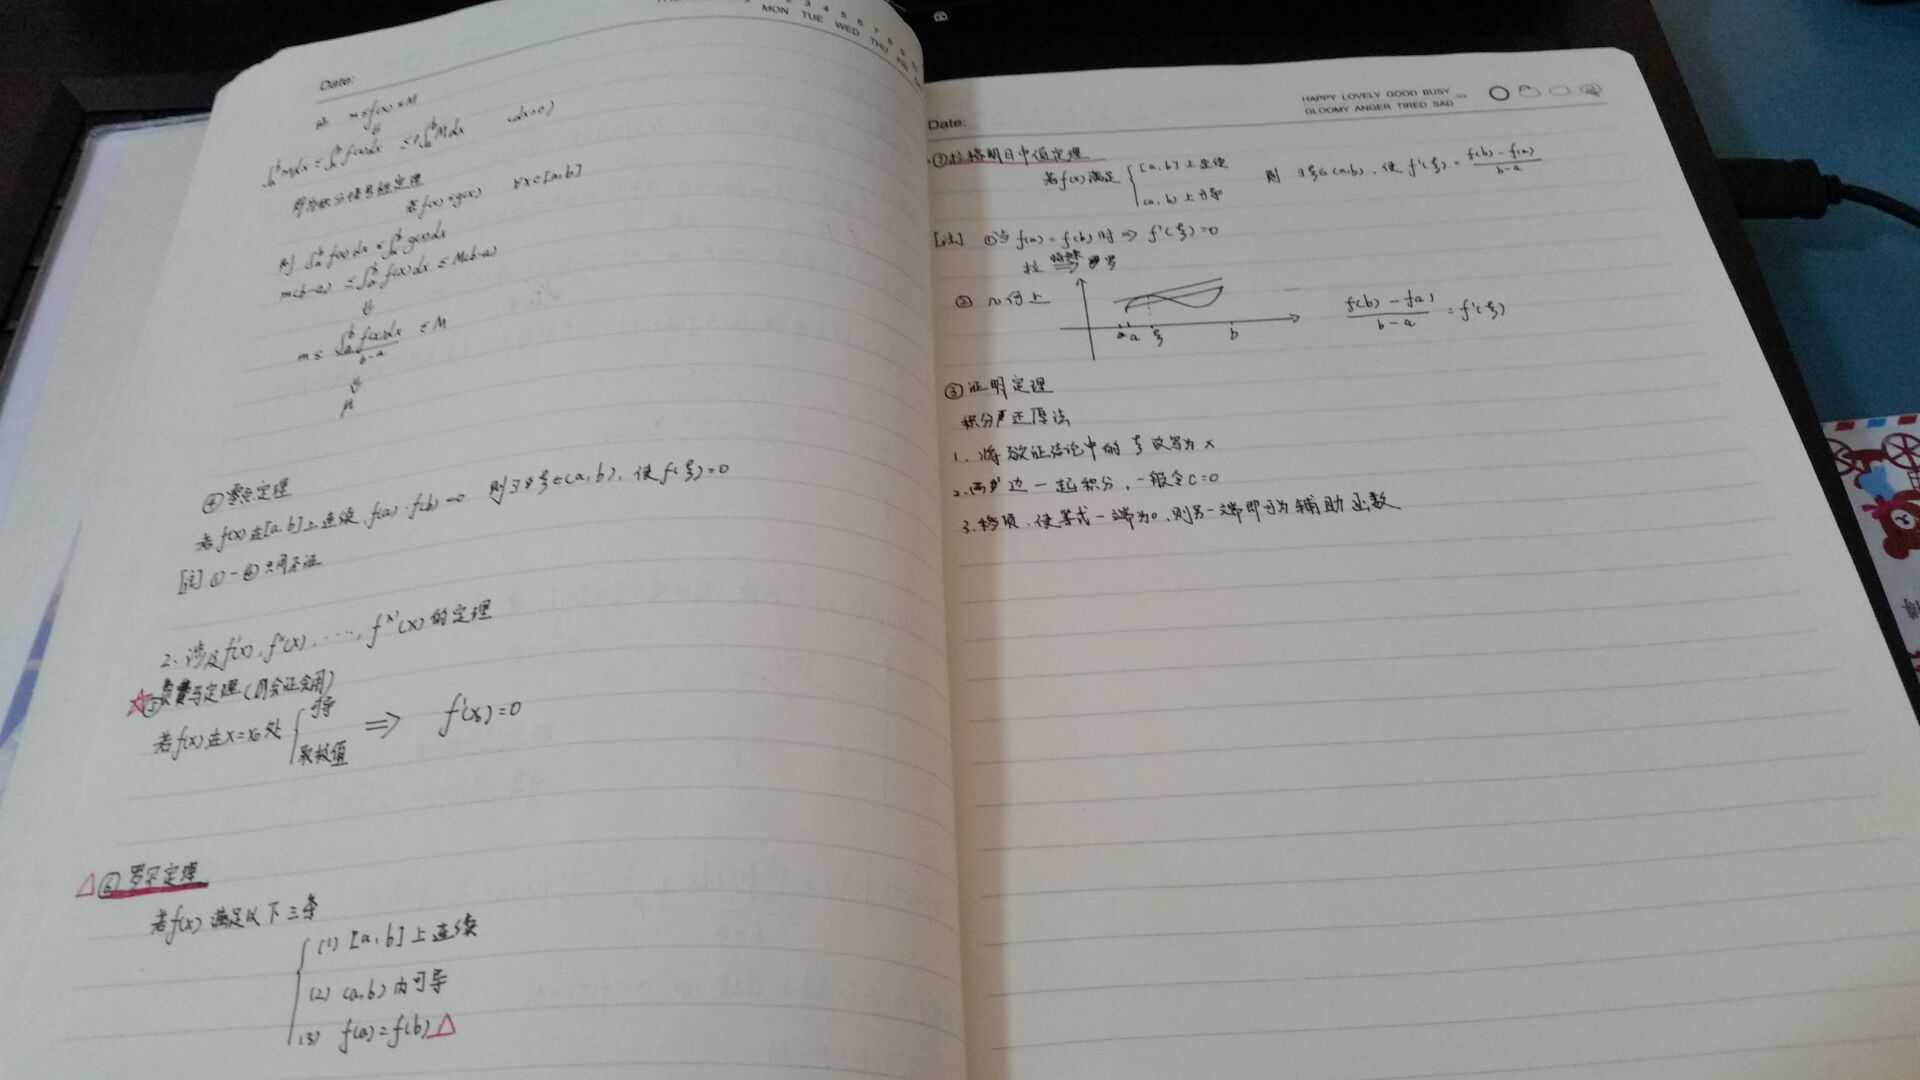 Date:
MON TUE WED THU FRI
3 4 5 6 7 8 9
m≤f(x)≤M
⇓
∫ₐᵇmdx≤∫ₐᵇf(x)dx≤∫ₐᵇMdx (dx>0)
即为积分保号性定理
若f(x)≤g(x) ∀x∈[a,b]
则 ∫ₐᵇf(x)dx≤∫ₐᵇg(x)dx
m(b-a)≤∫ₐᵇf(x)dx≤M(b-a)
⇓
m≤ ∫ₐᵇf(x)dx/(b-a) ≤M
⇓
μ
④零点定理
若f(x)在[a,b]上连续, f(a)·f(b)<0 则∃ξ∈(a,b), 使f(ξ)=0
[注]①-④只用不证
2. 涉及f'(x), f''(x), ⋯, 的定理
⑤费马定理(会证会用)
若f(x)在x=x₀处 { 可导 取极值 ⇒ f'(x₀)=0
△⑥罗尔定理
若f(x)满足以下三条
(1) [a,b]上连续
(2) (a,b)内可导
(3) f(a)=f(b)△
HAPPY LOVELY GOOD BUSY
GLOOMY ANGER TIRED SAD
Date:
⑦拉格朗日中值定理
若f(x)满足 { [a,b]上连续 (a,b)上可导 则 ∃ξ∈(a,b), 使f'(ξ)=(f(b)-f(a))/(b-a)
[注] ①当f(a)=f(b)时⇒f'(ξ)=0
拉 ⇒ 罗
② 几何上
a ξ b
(f(b)-f(a))/(b-a)=f'(ξ)
③证明定理
积分还原法
1. 将欲证结论中的ξ改写为x
2. 两边一起积分, 一般令C=0
3. 移项, 使等式一端为0, 则另一端即为辅助函数